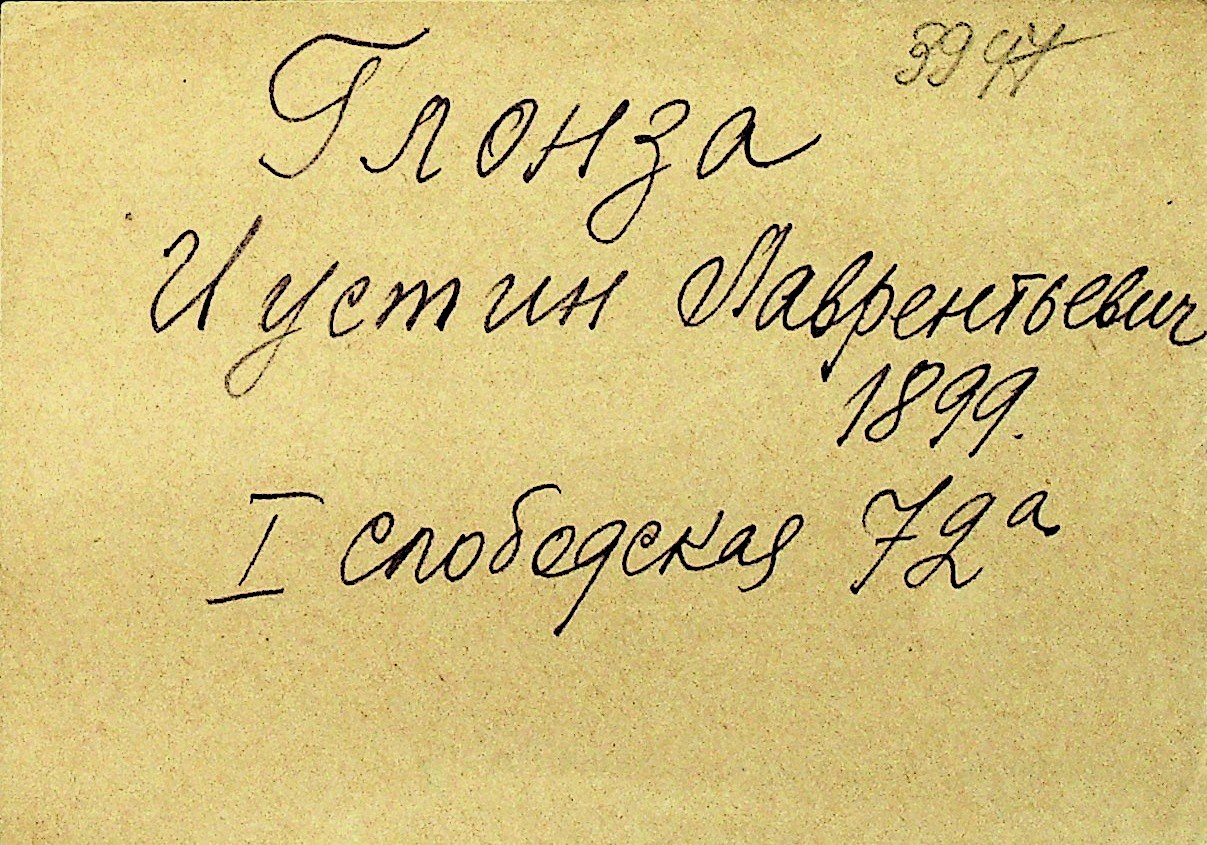 3947
Глонза
Иустин Лаврентьевич
1899.
I слободская 72а